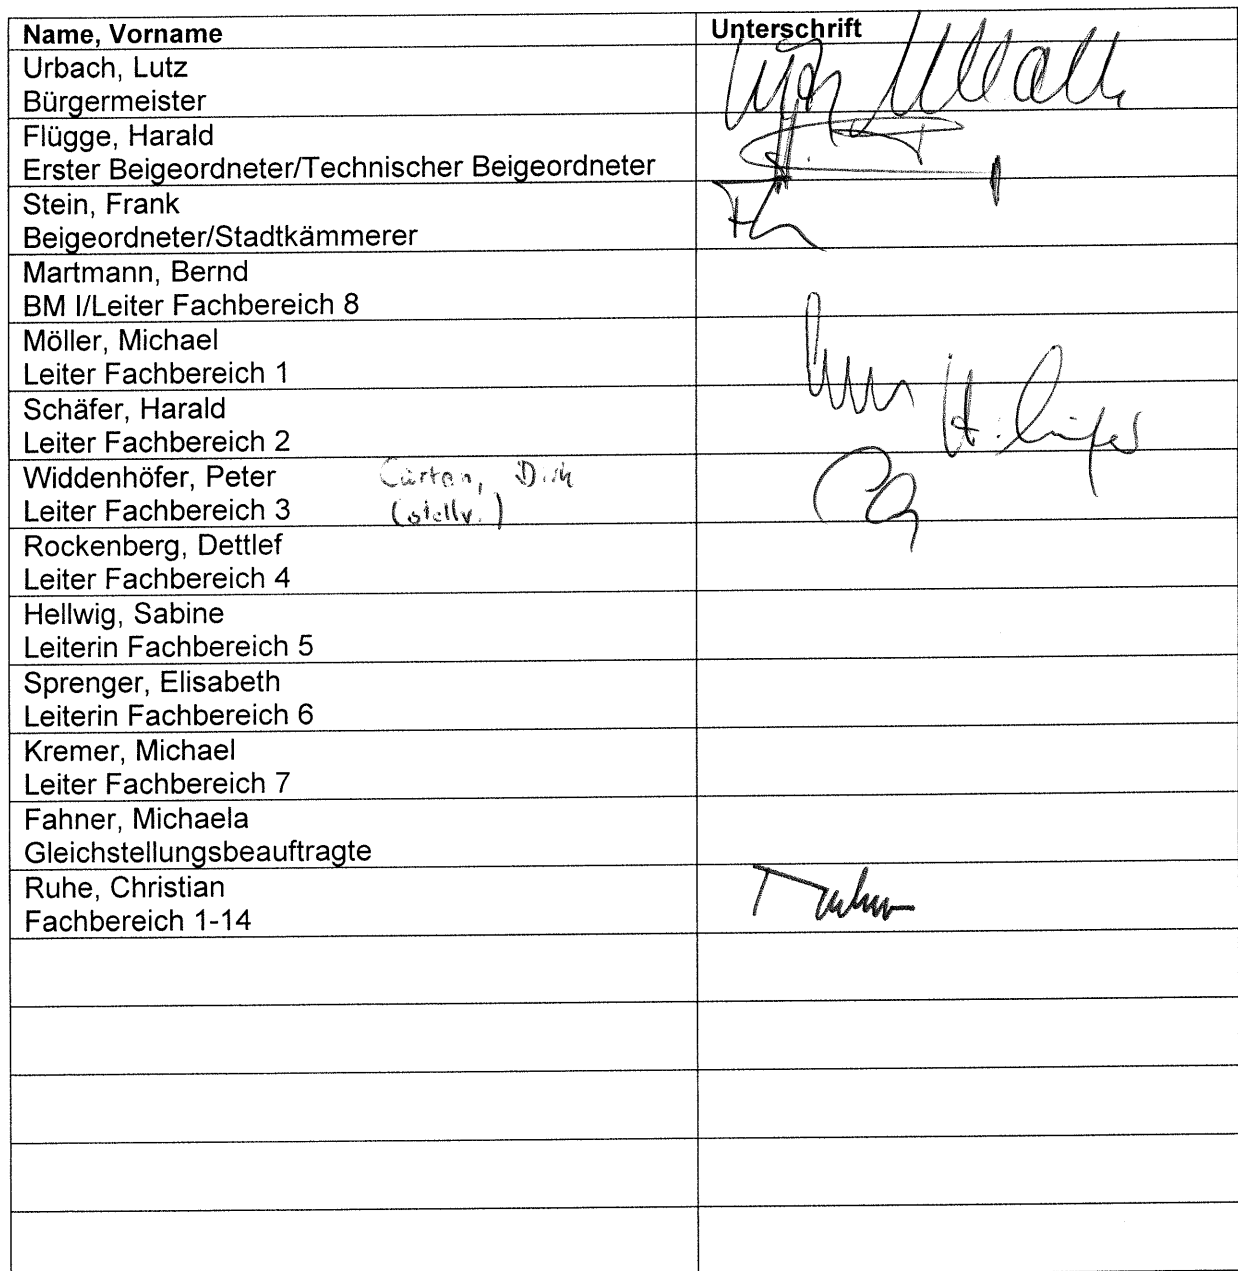 Name, Vorname Unterschrift
Urbach, Lutz
Bürgermeister
Flügge, Harald
Erster Beigeordneter/Technischer Beigeordneter
Stein, Frank
Beigeordneter/Stadtkämmerer
Martmann, Bernd
BM I/Leiter Fachbereich 8
Möller, Michael
Leiter Fachbereich 1
Schäfer, Harald
Leiter Fachbereich 2
Widdenhöfer, Peter Cürten, Dirk
Leiter Fachbereich 3 (stellv.)
Rockenberg, Dettlef
Leiter Fachbereich 4
Hellwig, Sabine
Leiterin Fachbereich 5
Sprenger, Elisabeth
Leiterin Fachbereich 6
Kremer, Michael
Leiter Fachbereich 7
Fahner, Michaela
Gleichstellungsbeauftragte
Ruhe, Christian
Fachbereich 1-14